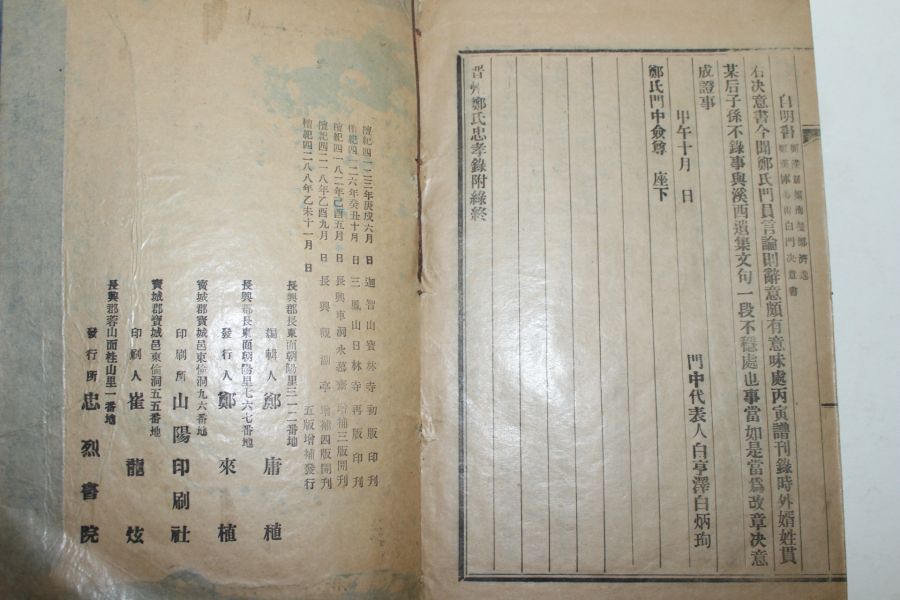 白明書
右决意書今聞鄭氏門員言論則辭意頗有意味處丙寅譜刊錄時外婿姓貫
某后子孫不錄事與溪西遺集文句一段不穩處也事當如是當爲改章决意
成證事
甲午十月　日
門中代表人白亨澤白炳珣
鄭氏門中僉尊　座下
晋州鄭氏忠孝錄附錄終
檀紀四一二三年庚戌六月　日　迦智山寶林寺初版印刋
檀紀四一二六年癸丑十月　日　三鳳山日林寺再版印刋
檀紀四一八二年己酉五月　日　長興車洞永慕齋增補三版開刋
檀紀四二一八年乙酉九月　日　長興觀湖亭增補四版開刋
檀紀四二八八年乙未十一月　日　五版增補發行
長興郡長東面朝陽里三一二番地
編輯人　鄭庸植
長興郡長東面朝陽里七六七番地
發行人　鄭來植
寶城郡寶城邑東倫洞九六番地
印刷所　山陽印刷社
寶城郡寶城邑東倫洞五五番地
印刷人　崔龍炫
長興郡蓉山面桂山里一番地
發行所　忠烈書院